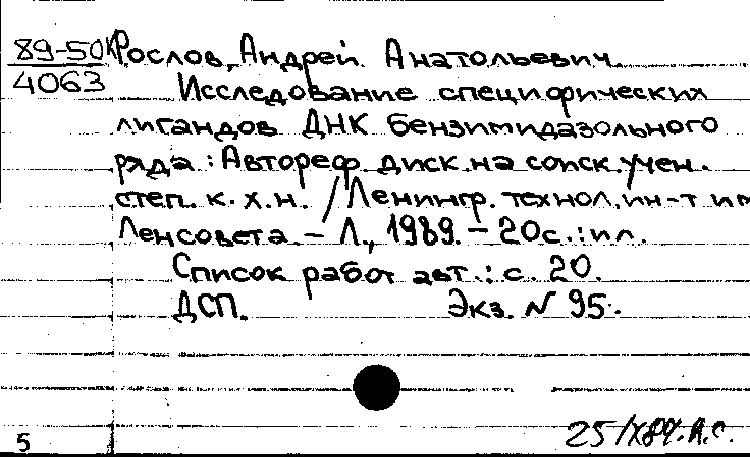 89-50к Рослов, Андрей Анатольевич
4063
Исследование специфических
лигандов ДНК бензимидазольного
ряда : Автореф. диск. на соиск. учен.
степ. к. х. н. / Ленингр. технол. ин-т им
Ленсовета. – Л., 1989. – 20 с. : ил.
Список работ авт. : с. 20.
ДСП. Экз. N 95.
5 25/X89. А.С.